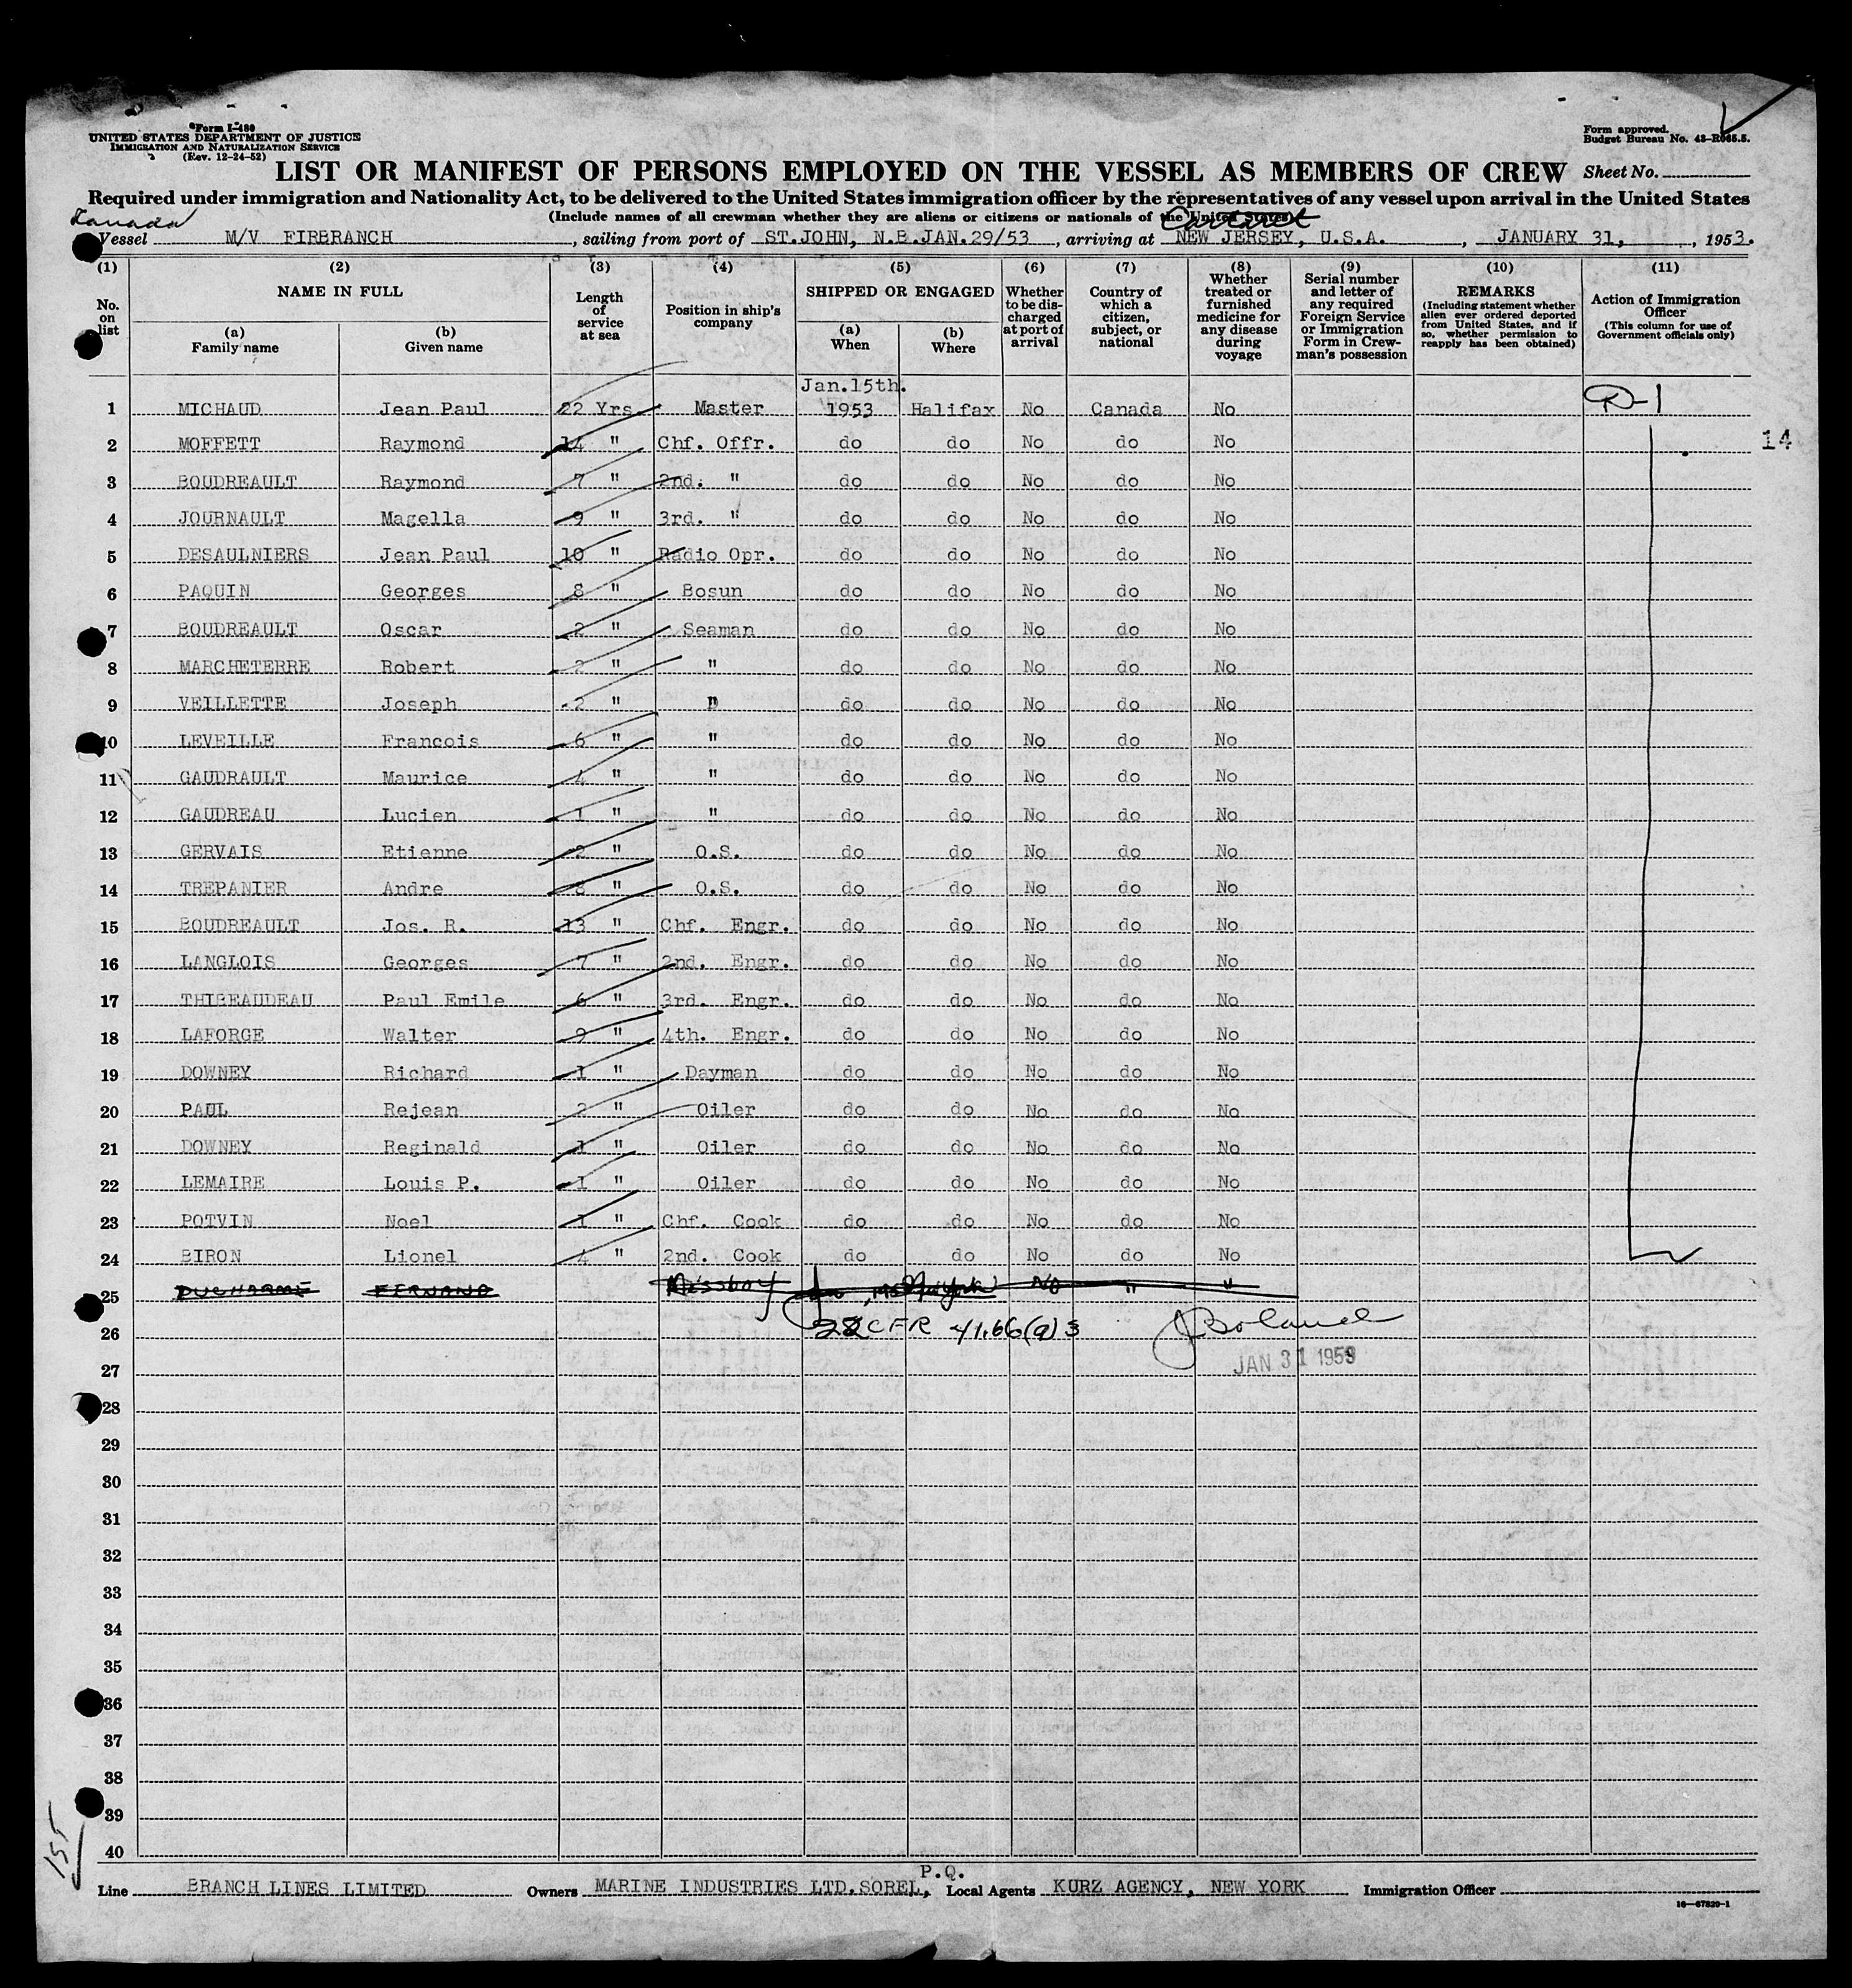 Form I-480
UNITED STATES DEPARTMENT OF JUSTICE
IMMIGRATION AND NATURALIZATION SERVICE
(Rev. 12-24-52)
Form approved.
Budget Bureau No. 43-R065.5.
LIST OR MANIFEST OF PERSONS EMPLOYED ON THE VESSEL AS MEMBERS OF CREW Sheet No.
Required under immigration and Nationality Act, to be delivered to the United States immigration officer by the representatives of any vessel upon arrival in the United States
(Include names of all crewman whether they are aliens or citizens or nationals of the United States)
Canada Carteret
Vessel M/V FIRBRANCH, sailing from port of ST.JOHN, N.B.JAN.29/53, arriving at NEW JERSEY, U.S.A., JANUARY 31, 1953.
(1) (2) (3) (4) (5) (6) (7) (8) (9) (10) (11)
No. on list
NAME IN FULL
(a) Family name
(b) Given name
Length of service at sea
Position in ship's company
SHIPPED OR ENGAGED
(a) When
(b) Where
Whether to be discharged at port of arrival
Country of which a citizen, subject, or national
Whether treated or furnished medicine for any disease during voyage
Serial number and letter of any required Foreign Service or Immigration Form in Crewman's possession
REMARKS
(Including statement whether alien ever ordered deported from United States, and if so, whether permission to reapply has been obtained)
Action of Immigration Officer
(This column for use of Government officials only)
Jan.15th.
1 MICHAUD Jean Paul 22 Yrs Master 1953 Halifax No Canada No D-1
2 MOFFETT Raymond 14 " Chf. Offr. do do No do No 14
3 BOUDREAULT Raymond 7 " 2nd. " do do No do No
4 JOURNAULT Magella 9 " 3rd. " do do No do No
5 DESAULNIERS Jean Paul 10 " Radio Opr. do do No do No
6 PAQUIN Georges 8 " Bosun do do No do No
7 BOUDREAULT Oscar 2 " Seaman do do No do No
8 MARCHETERRE Robert 2 " " do do No do No
9 VEILLETTE Joseph 2 " " do do No do No
10 LEVEILLE Francois 6 " " do do No do No
11 GAUDRAULT Maurice 4 " " do do No do No
12 GAUDREAU Lucien 1 " " do do No do No
13 GERVAIS Etienne 2 " O.S. do do No do No
14 TREPANIER Andre " O.S. do do No do No
15 BOUDREAULT Jos. R. 13 " Chf. Engr. do do No do No
16 LANGLOIS Georges 7 " 2nd. Engr. do do No do No
17 THIBEAUDEAU Paul Emile 6 " 3rd. Engr. do do No do No
18 LAFORGE Walter 9 " 4th. Engr. do do No do No
19 DOWNEY Richard 1 " Dayman do do No do No
20 PAUL Rejean 2 " Oiler do do No do No
21 DOWNEY Reginald 1 " Oiler do do No do No
22 LEMAIRE Louis P. 1 " Oiler do do No do No
23 POTVIN Noel 1 " Chf. Cook do do No do No
24 BIRON Lionel 4 " 2nd. Cook do do No do No
25 DUCHARME FERNAND Messboy No " "
26 22 CFR 41.66(a)3 JBoland
27 JAN 31 1953
28
29
30
31
32
33
34
35
36
37
38
39
40
155
P.Q.
Line BRANCH LINES LIMITED Owners MARINE INDUSTRIES LTD.SOREL, Local Agents KURZ AGENCY, NEW YORK Immigration Officer
16—67829-1